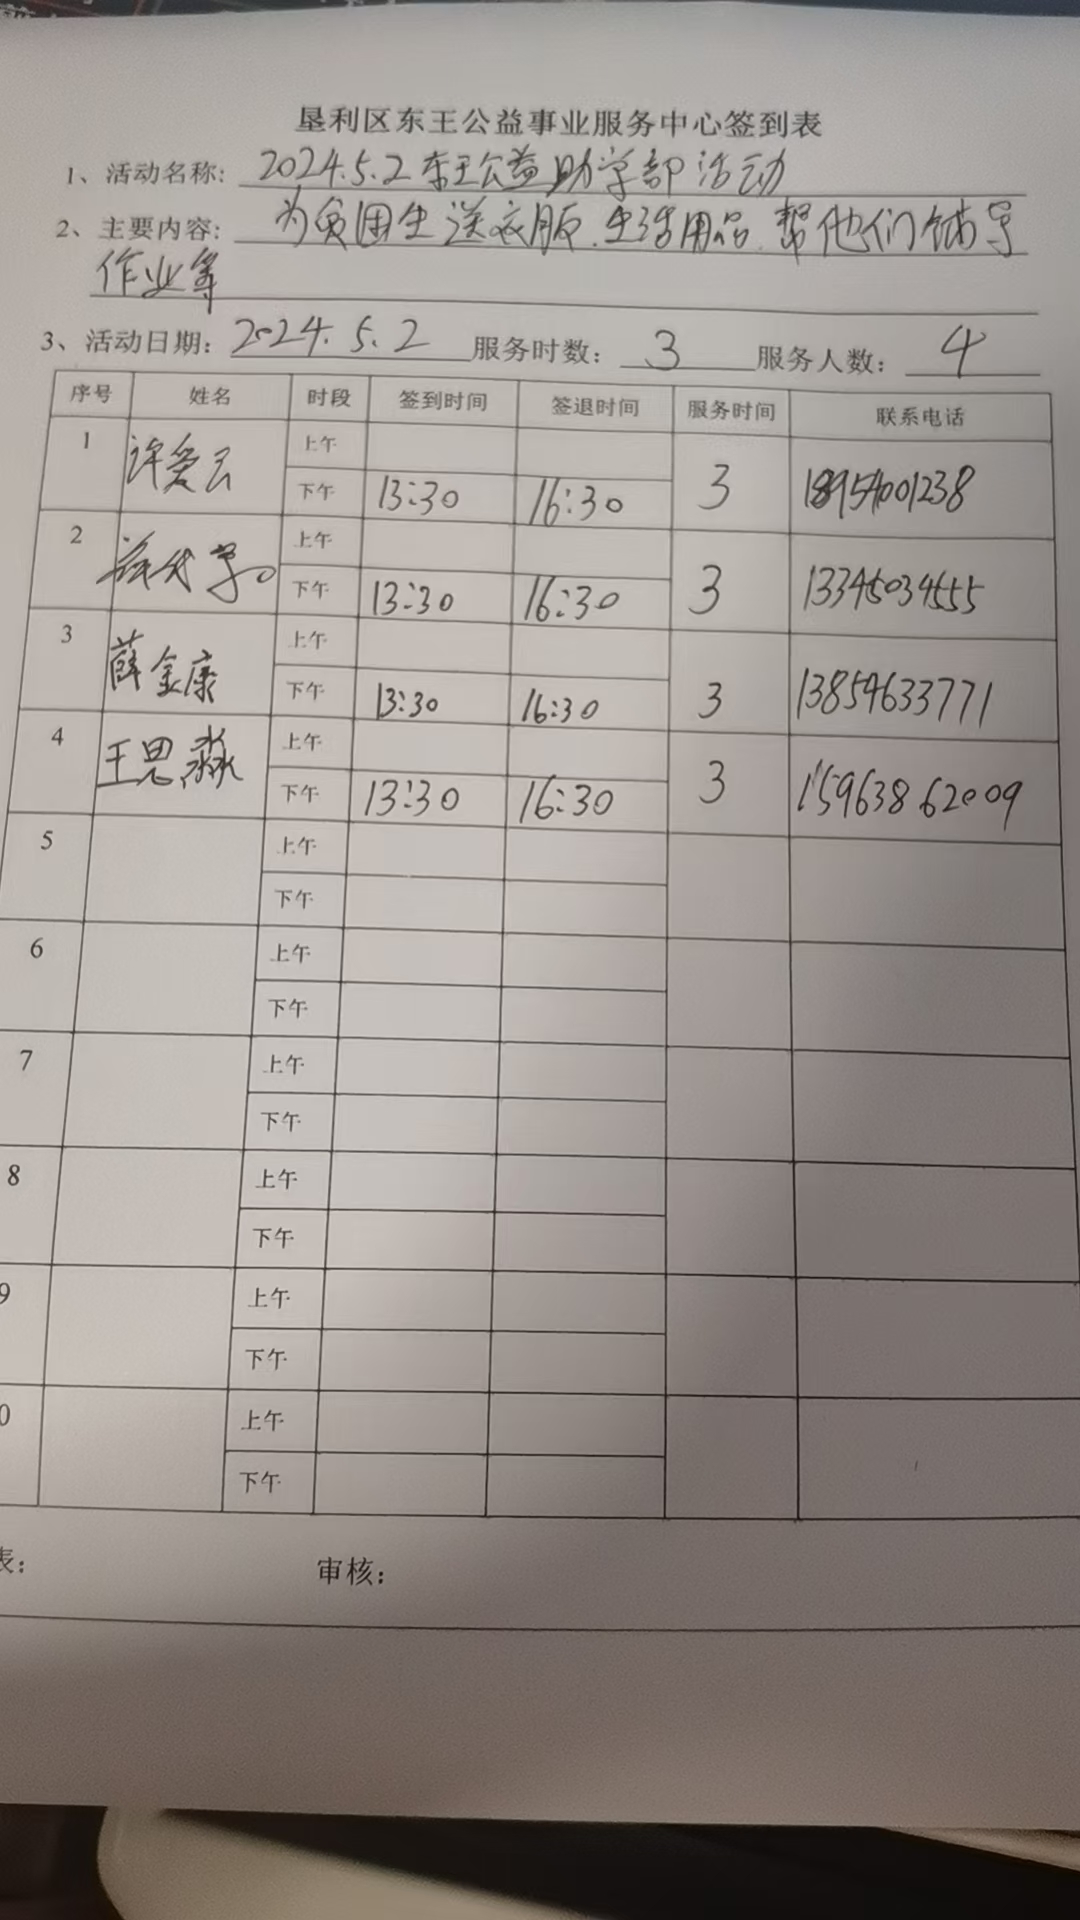 垦利区东王公益事业服务中心签到表
1、活动名称: 2024.5.2东王公益助学部活动
2、主要内容: 为贫困生送衣服、生活用品、帮他们辅导
作业等
3、活动日期: 2024.5.2 服务时数: 3 服务人数: 4
序号 姓名 时段 签到时间 签退时间 服务时间 联系电话
1 许爱云 上午
下午 13:30 16:30 3 18954001238
2 上午
下午 13:30 16:30 3 13345034555
3 薛金康 上午
下午 13:30 16:30 3 13854633771
4 王思淼 上午
下午 13:30 16:30 3 15963862009
5 上午
下午
6 上午
下午
7 上午
下午
8 上午
下午
9 上午
下午
0 上午
下午
表: 审核: